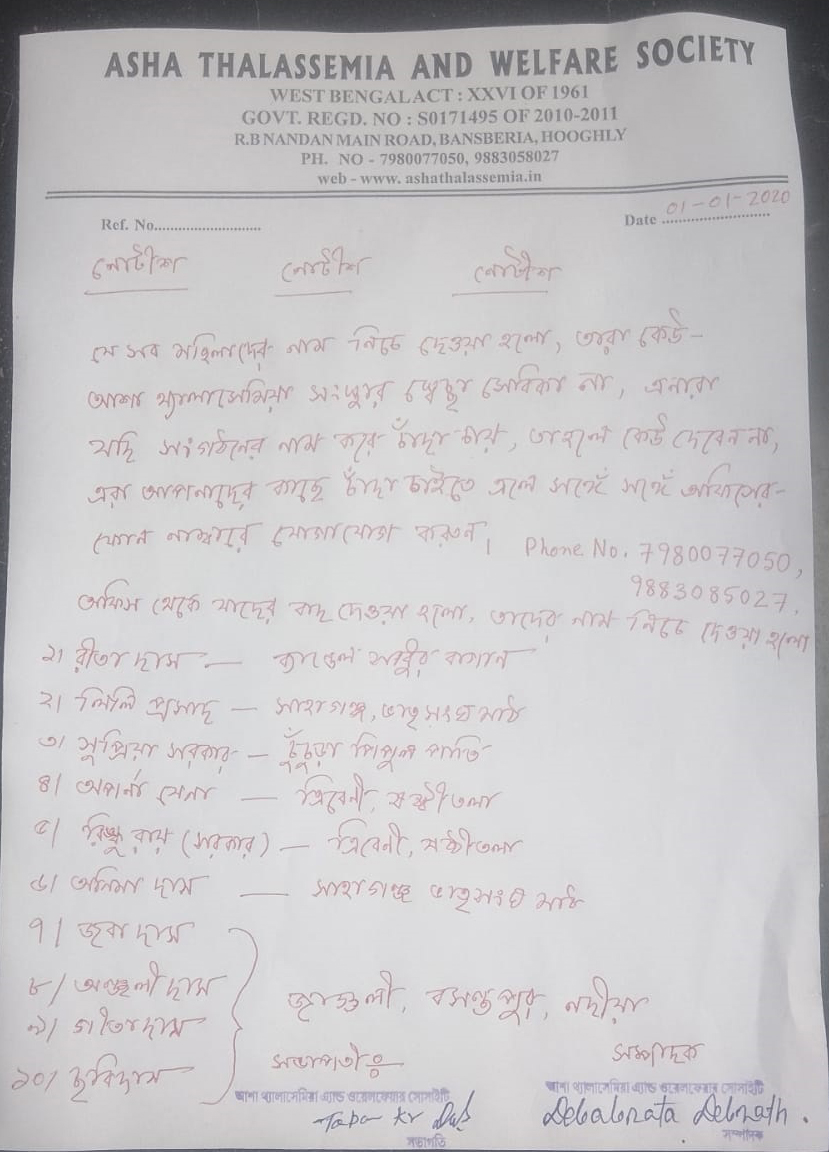 ASHA THALASSEMIA AND WELFARE SOCIETY
WEST BENGAL ACT : XXVI OF 1961
GOVT. REGD. NO : S0171495 OF 2010-2011
R.B NANDAN MAIN ROAD, BANSBERIA, HOOGHLY
PH. NO - 7980077050, 9883058027
web - www. ashathalassemia.in
Ref. No.............................
Date 01-01-2020
নোটীশ নোটীশ নোটীশ
যে সব মহিলাদের নাম নিচে দেওয়া হলো, তারা কেউ-
আশা থ্যালাসেমিয়া সংস্থার স্বেচ্ছা সেবিকা না, এনারা
যদি সংগঠনের নাম করে চাঁদা চায়, তাহলে কেউ দেবেন না,
এরা আপনাদের কাছে চাঁদা চাইতে এলে সঙ্গেঁ সঙ্গেঁ অফিসের-
ফোন নাম্বারে যোগাযোগ করুন। Phone No. 7980077050,
9883085027.
অফিস থেকে যাদের বাদ দেওয়া হলো, তাদের নাম নিচে দেওয়া হলো
১। রীতা দাস — ব্যান্ডেল বাগান
২। লিলি প্রসাদ — সাহাগঞ্জ, ভাতৃসংঘ মাঠ
৩। সুপ্রিয়া সরকার — চুঁচুড়া পিপুল পাতি
৪। অপর্না সেনা — ত্রিবেনী, ষষ্ঠীতলা
৫। রিঙ্কু রায় (সরকার) — ত্রিবেনী, ষষ্ঠীতলা
৬। অনিমা দাস — সাহাগঞ্জ ভাতৃসংঘ মাঠ
৭। জবা দাস
৮। অঞ্জলী দাস
জাগুলী, বসন্তপুর, নদীয়া
৯। গীতা দাস
১০। ছবি দাস
সভাপতীঃ সম্পাদক
আশা থ্যালাসেমিয়া এ্যান্ড ওয়েলফেয়ার সোসাইটি আশা থ্যালাসেমিয়া এ্যান্ড ওয়েলফেয়ার সোসাইটি
Tapan Kr Das Debabrata Debnath.
সভাপতি সম্পাদক